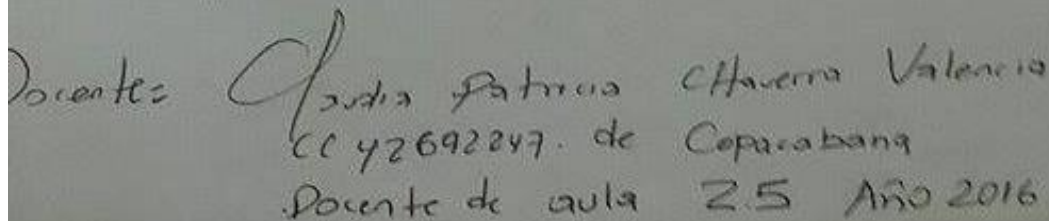 Docente= Claudia Patricia CHaverra Valencia
CC 42692247. de Copacabana
Docente de aula 2.5 Año 2016